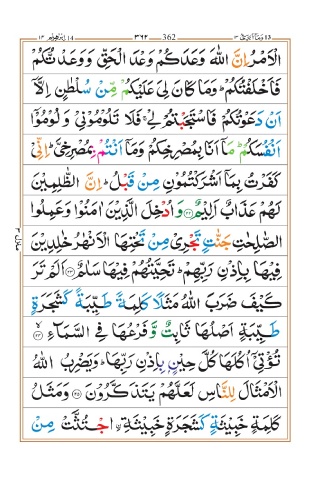 ١٣ ابرٰهيم ١٤ ٣٦٢ 362 وما ابرئ ١٣
الْاَمْرُ اِنَّ اللّٰهَ وَعَدَكُمْ وَعْدَ الْحَقِّ وَوَعَدْتُّكُمْ
فَاَخْلَفْتُكُمْ ؕ وَمَا كَانَ لِيَ عَلَيْكُمْ مِّنْ سُلْطٰنٍ اِلَّاۤ
اَنْ دَعَوْتُكُمْ فَاسْتَجَبْتُمْ لِيْ ۚ فَلَا تَلُوْمُوْنِيْ وَلُوْمُوْۤا
اَنْفُسَكُمْ ؕ مَاۤ اَنَا بِمُصْرِخِكُمْ وَمَاۤ اَنْتُمْ بِمُصْرِخِيَّ ؕ اِنِّيْ
كَفَرْتُ بِمَاۤ اَشْرَكْتُمُوْنِ مِنْ قَبْلُ ؕ اِنَّ الظّٰلِمِيْنَ
لَهُمْ عَذَابٌ اَلِيْمٌ ﴿٢٢﴾ وَاُدْخِلَ الَّذِيْنَ اٰمَنُوْا وَعَمِلُوا
الصّٰلِحٰتِ جَنّٰتٍ تَجْرِيْ مِنْ تَحْتِهَا الْاَنْهٰرُ خٰلِدِيْنَ
فِيْهَا بِاِذْنِ رَبِّهِمْ ؕ تَحِيَّتُهُمْ فِيْهَا سَلٰمٌ ﴿٢٣﴾ اَلَمْ تَرَ
كَيْفَ ضَرَبَ اللّٰهُ مَثَلًا كَلِمَةً طَيِّبَةً كَشَجَرَةٍ
طَيِّبَةٍ اَصْلُهَا ثَابِتٌ وَّفَرْعُهَا فِي السَّمَآءِ ﴿٢٤﴾
تُؤْتِيْۤ اُكُلَهَا كُلَّ حِيْنٍۭ بِاِذْنِ رَبِّهَا ؕ وَيَضْرِبُ اللّٰهُ
الْاَمْثَالَ لِلنَّاسِ لَعَلَّهُمْ يَتَذَكَّرُوْنَ ﴿٢٥﴾ وَمَثَلُ
كَلِمَةٍ خَبِيْثَةٍ كَشَجَرَةٍ خَبِيْثَةِ ۟اجْتُثَّتْ مِنْ